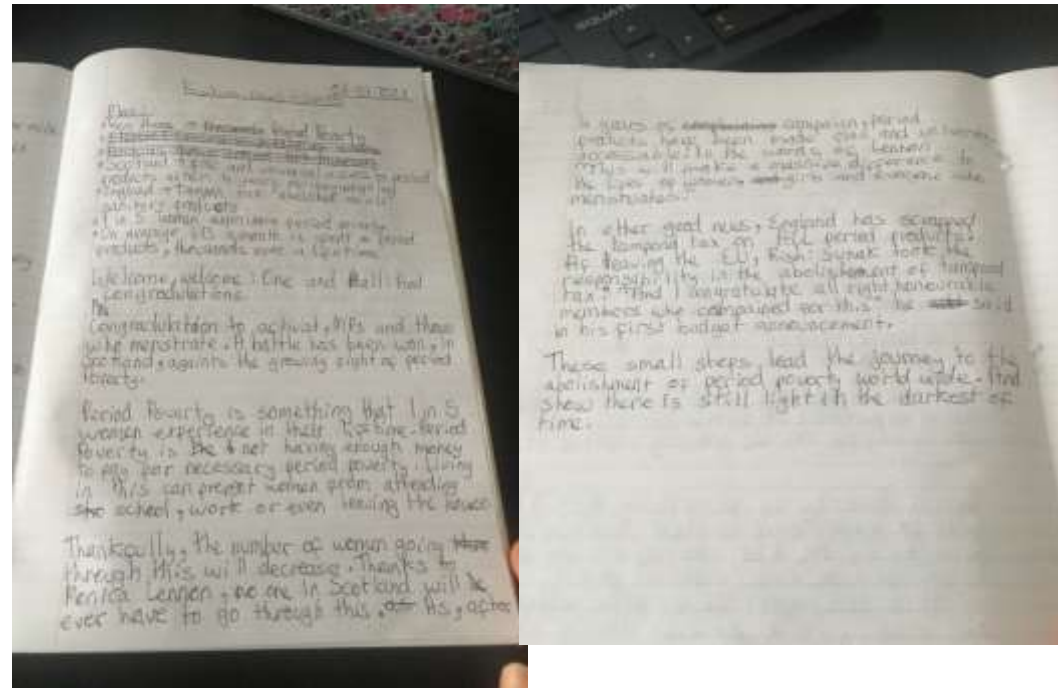 Plan:
period Poverty
• Scotland → free and universal access to period
products
• England → Tampon tax
sanitary products
• 1 in 5 women experience period poverty
• On average, £13 a month is spent on period
products, thousands over a lifetime
Welcome, welcome: One and All! find
congradulations.
Congradulation to activat, MPs and those
who menstrate. A battle has been won, in
Scotland, againts the growing sight of period
poverty.
Period Poverty is something that 1 in 5
women experience in their lifetime. Period
Poverty is the not having enough money
to pay for necessary period poverty. Living
in this can prevent women from attending
school, work or even leaving the house.
Thankfully, the number of women going
through this will decrease. Thanks to
Monica Lennon, no one in Scotland will
ever have to go through this. As, after
4 years of campaign, period
products have been made free and universally
accessable to the words of Lennon
"This will make a massive difference to
the lives of women and girls and everyone who
menstruates."
In other good news, England has scrapped
the tampond tax on period products.
Af leaving the EU, Rishi Sunak took the
responsibility in the abolishment of tampond
tax. "And I congratulate all right honourable
members who campained for this" he said
in his first budget announcement.
These small steps lead the journey to the
abolishment of period poverty world wide. And
show there is still light in the darkest of
time.